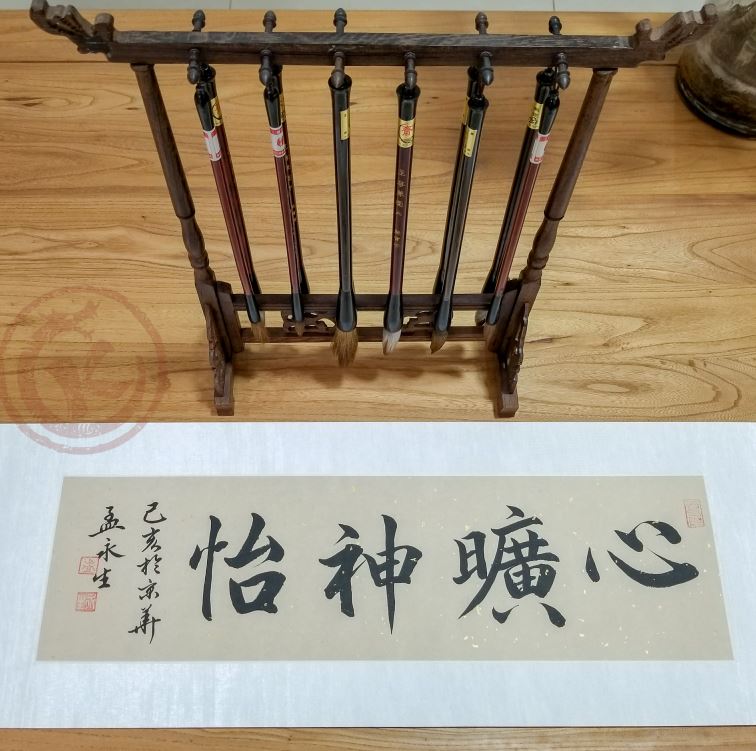 心曠神怡
己亥於京華
孟永生